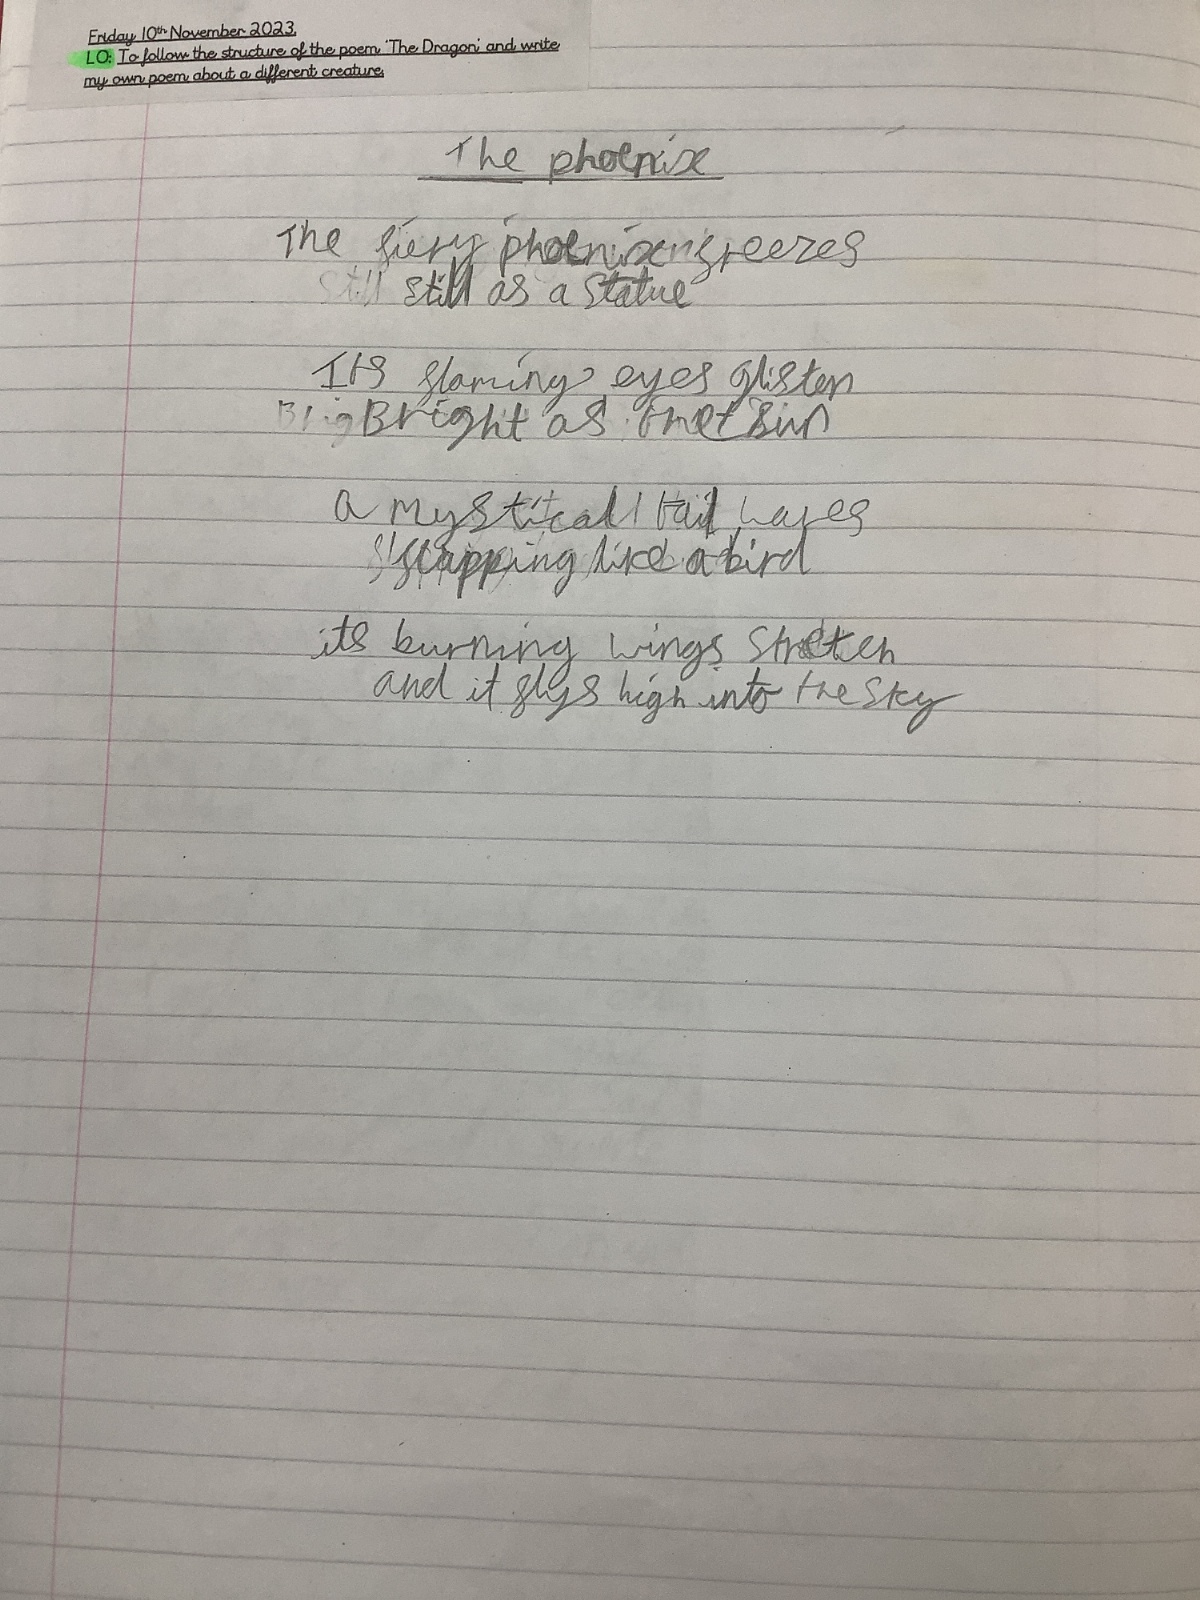 Friday 10th November 2023.
LO: To follow the structure of the poem 'The Dragon' and write
my own poem about a different creature.
The phoenix
The fiery phoenix freezes
Still as a statue
Its flaming eyes glisten
Bright as the sun
a mystical tail waves
flapping like a bird
its burning wings stretch
and it flys high into the sky